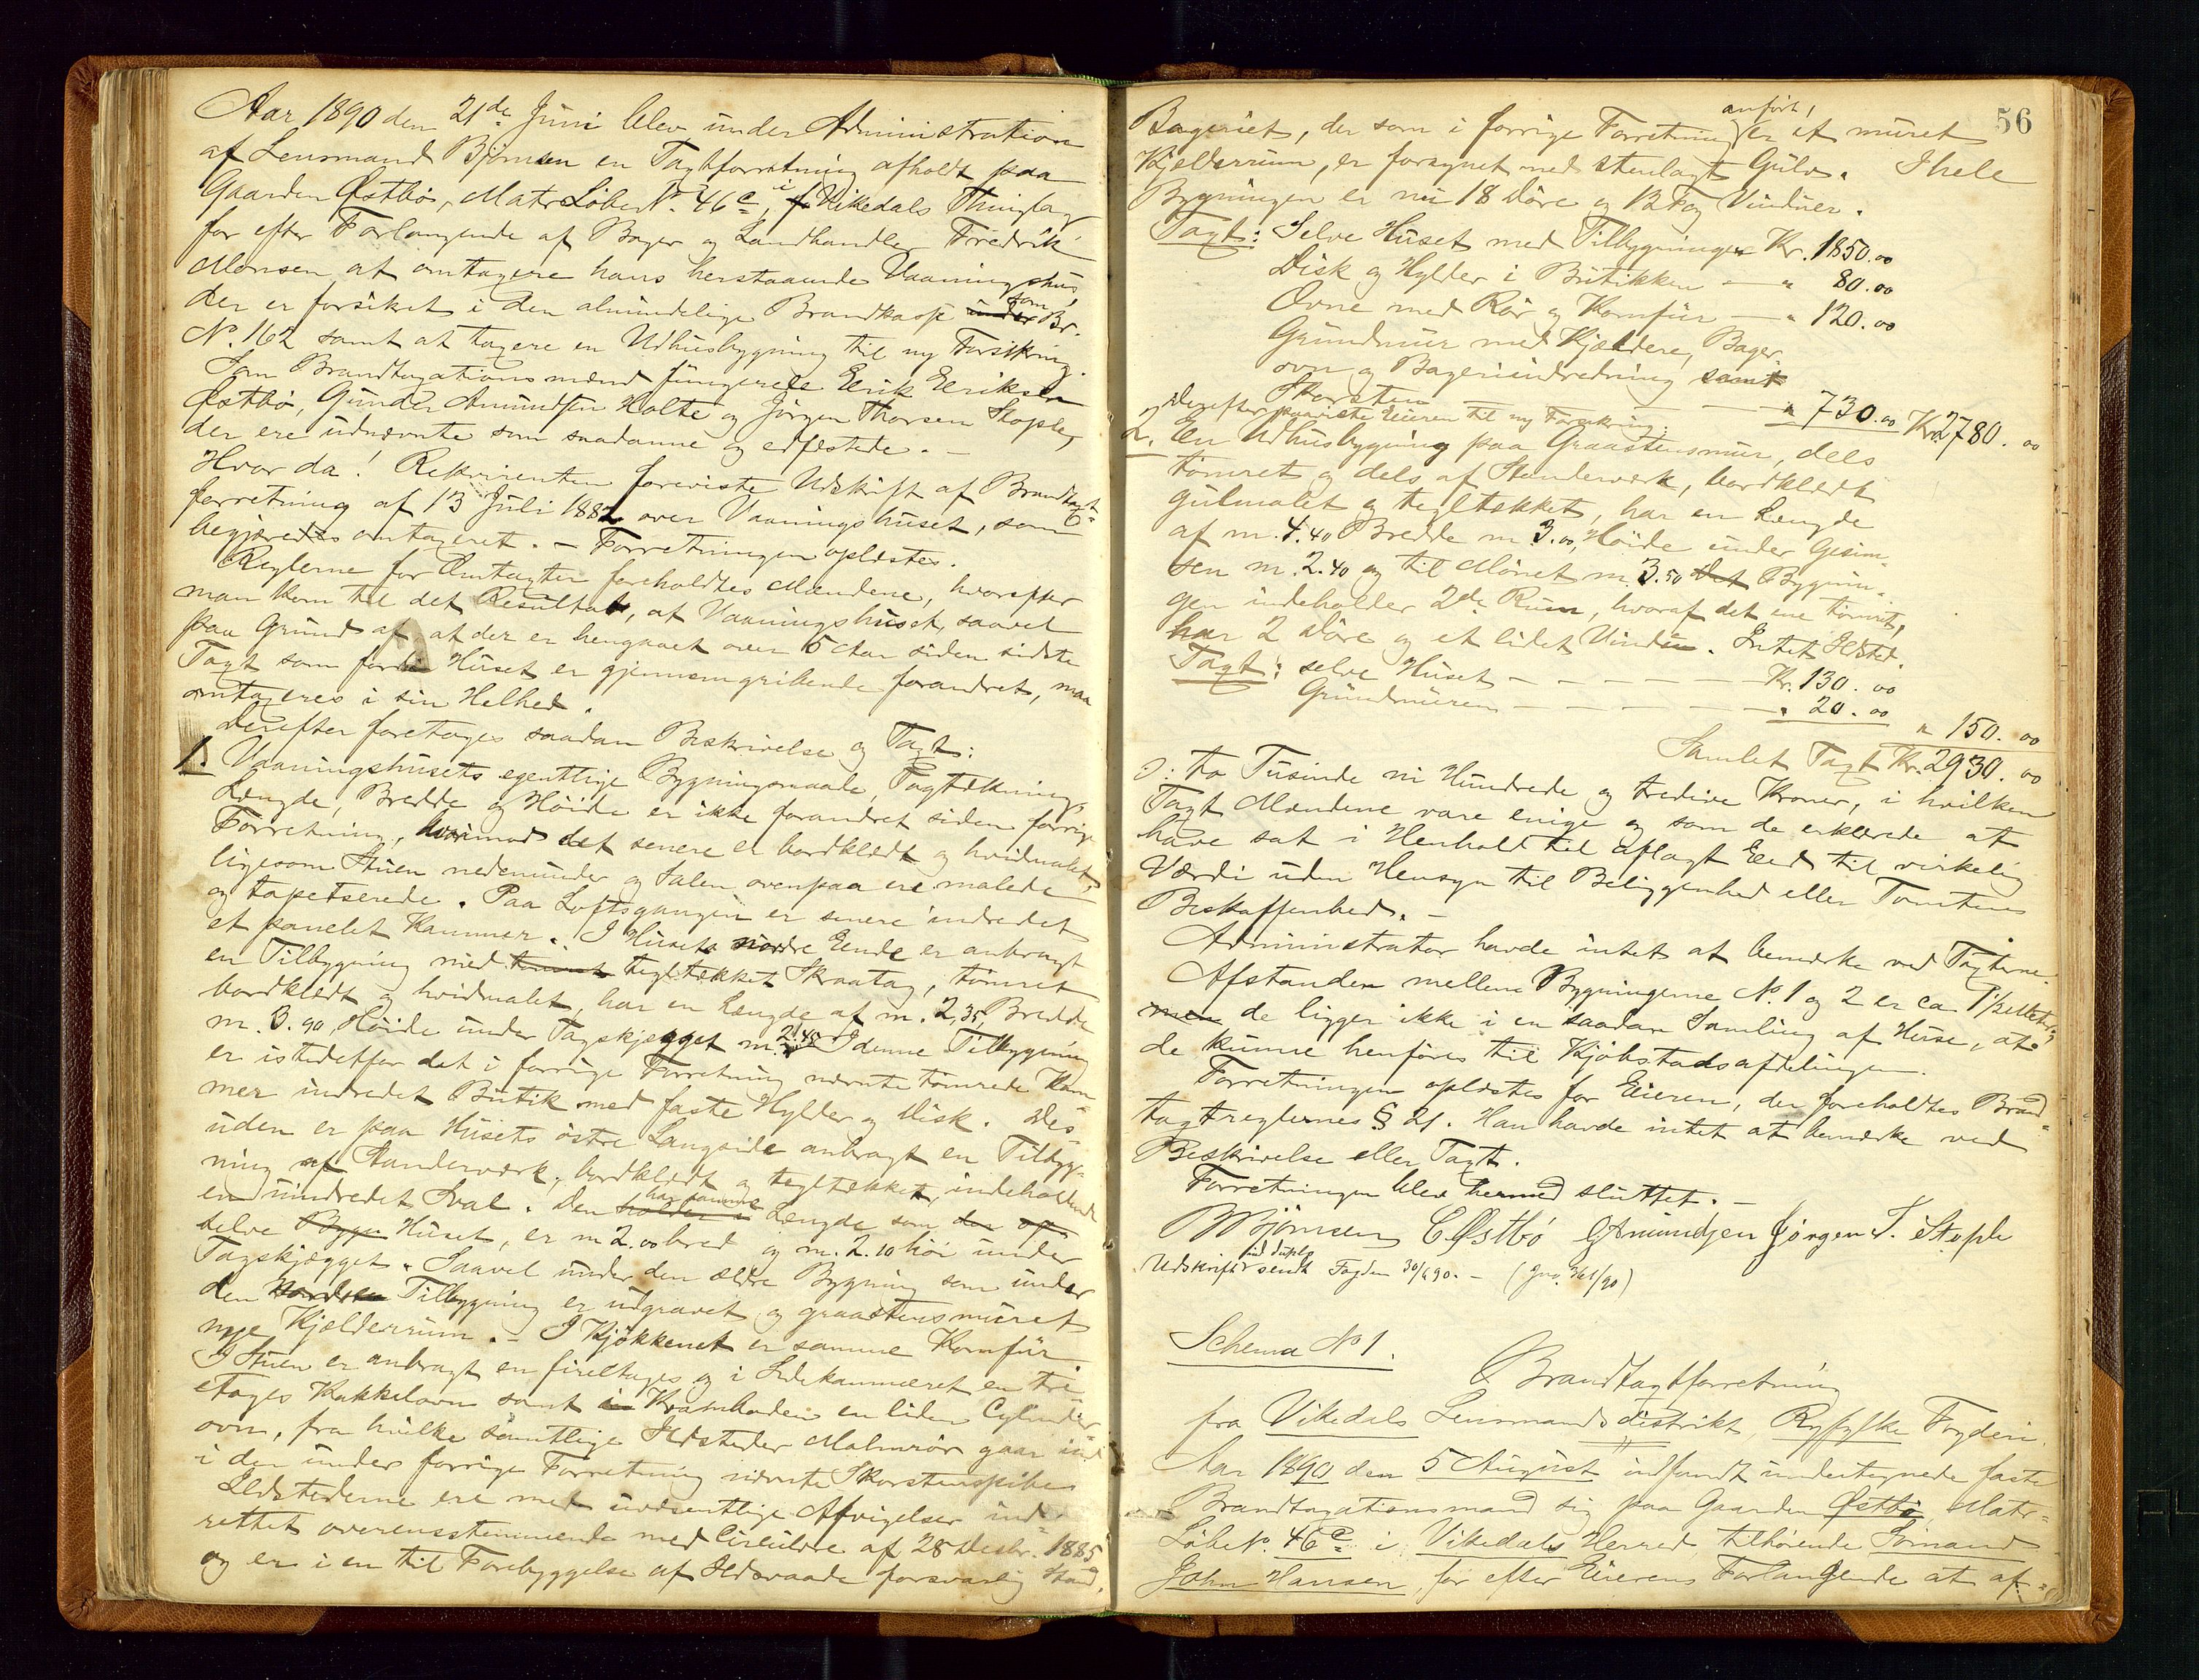 Aar 1890 den 21de Juni blev under Administration
af Lensmand Bjørnsen en Taxtforretning afholdt paa
Gaarden Østbø, Matr Løbe No. 46 c, i Vikedals Thinglag
for efter Forlangende af Bager og Landhandler Fredrik
Monsen at omtaxere hans herstaaende Vaaningshus,
der er forsikret i den almindelige Brandkasse under som Br.
No. 162 samt at taxere en Udhusbygning til ny Forsikring.
Som Brandtaxationsmænd fungerede Eerik Eeriksen
Østbø, Gunder Amundsen Holte og Jørgen Thorsen Stople,
der ere udnævnte som saadanne og edfæstede. -
Hvor da! Rekvirenten foreviste Udskrift af Brandtaxt-
forretning af 13 Juli 1882 over Vaaningshuset, som
begjæredes omtaxeret. - Forretningen oplæstes.
Reglerne for Omtaxter foreholdtes Mændene, hvorefter
man kom til det Resultat, at Vaaningshuset, saavel
paa Grund af at der er hengaaet over 5 Aar siden sidste
Taxt som fordi Huset er gjennemgribende forandret, maa
omtaxeres i sin Helhed.
Derefter foretages saadan Beskrivelse og Taxt:
1. Vaaningshusets egentlige Bygningsmaade, Tagtækning,
Længde, Bredde og Høide er ikke forandret siden forrige
Forretning, hvorimod det senere er bordklædt og hvidmalet,
ligesom Stuen nedenunder og Salen ovenpaa ere malede
og tapetserede. Paa Loftsgangen er senere indredet
et panelet Kammer. I Husets nordre Eende er anbragt
en Tilbygning med tømret tegltækket Skraatag, tømret
bordklædt og hvidmalet, har en Længde af m. 2,35, Bredde
m. 3.90, Høide under Tagskjegget m. 2.40. I denne Tilbygning
er istedetfor det i forrige Forretning nævnte tømrede Kam-
mer indredet Butik med faste Hylder og Disk. Des-
uden er paa Husets østre Langside anbragt en Tilbyg-
ning af Standerværk, bordklædt og tegltækket, indeholdende
en uindredet Sval. Den holder i har samme Længde som den op
selve Bygn Huset, er m 2.00 bred og m. 2.10 høi under
Tagskjægget. Saavel under den ældre Bygning som under
den Nordre Tilbygning er udgravet og graastensmuret
nye Kjælderrum. - I Kjøkkenet er samme Komfur
I Stuen er anbragt en fireetages og i Sidekammeret en tre
etages Kakkelovn samt i Krambaden en liden Cylinder
ovn, fra hvilke samtlige Ildsteder Malmrør gaar ind
i den under forrige Forretning nævnte Skorstenspibe.
Ildstederne ere med uvæsentlige Afvigelser ind-
rettet overensstemmende med Cirkulære af 28 Decbr. 1885
og er i en til Forebyggelse af Ildsvaade forsvarlig Stand.
56
Bageriet, der som i forrige Forretning anført, er et muret
Kjelderrum, er forsynet med stenlagt Gulv. I hele
Bygningen er nu 18 Døre og 12 Fag Vinduer.
Taxt: Selve Huset med Tilbygninger Kr. 1850.00
Disk og Hylder i Butikken - " 80.00
Ovne med Rør og Komfur - " 120.00
Grundmur med Kjældere, Bager-
ovn og Bageriindredning samt
Skorsten - - - - " 730.00 Kr. 2780.00
Derefter paaviste Eieren til ny Forsikring:
2. En Udhusbygning paa Graastensmur, dels
tømret og dels af Standerværk, bordklædt
gulmalet og tegltækket, har en Længde
af m. 4.40 Bredde m. 3.00, Høide under Gesim-
sen m. 2.40 og til Mønet m. 3.50 Det Bygnin-
gen indeholder 2de Rum, hvoraf det ene tømret,
har 2 Døre og et lidet Vindu. Intet Ildsted.
Taxt: selve Huset - - - - - Kr. 130.00
Grundmuren - - - - - " 20.00
" 150.00
Samlet Taxt Kr. 2930.00
ɔ: to Tusinde ni Hundrede og tredive Kroner, i hvilken
Taxt Mændene vare enige og som de erklærede at
have sat i Henhold til aflagt Eed til virkelig
Værdi uden Hensyn til Beliggenhed eller Tomtens
Beskaffenhed. -
Administrator havde intet at bemærke ved Taxterne.
Afstanden mellem Bygningerne No. 1 og 2 er ca
men de ligger ikke i en saadan Samling af Huse, at
de kunne henføres til Kjøbstadsafdelingen.
Forretningen oplæstes for Eieren, der foreholdtes Brand-
taxtreglernes § 21. Han havde intet at bemærke ved
Beskrivelse eller Taxt.
Forretningen blev hermed sluttet. -
Bjørnsen E Østbø G Amundsen Jørgen T. Stople
Udskrift ind duplo sendt Fogden 30/6 90. - (Jno. 361/90)
Schema No 1.
Brandtaxtforretning
fra Vikedals Lensmandsdistrikt, Ryfylke Fogderi.
Aar 1890 den 5 August indfandt undertegnede faste
Brandtaxationsmænd sig paa Gaarden Østbø, Matr-
Løbe No. 46 c i Vikedals Herred, tilhørende Sømand
John Hansen, for efter Eierens Forlangende at af-